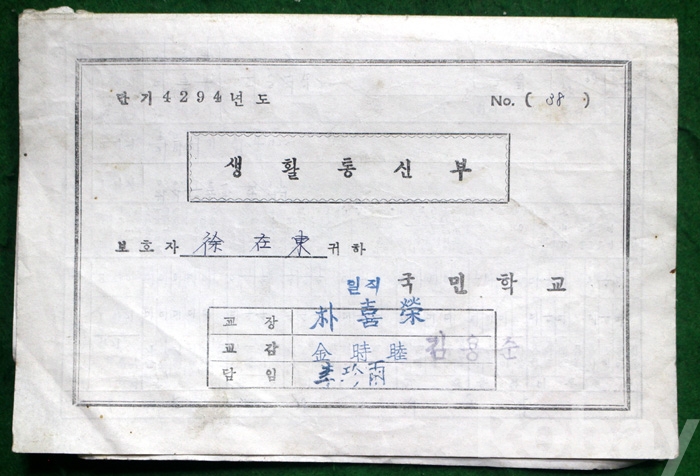 단기 4294년도 No. ( 38 )
생 활 통 신 부
보호자 徐 在 東 귀하
일직 국 민 학 교
교 장 朴 喜 榮
교 감 金 時 睦 김 용 준
담 임 李珍雨
kobay